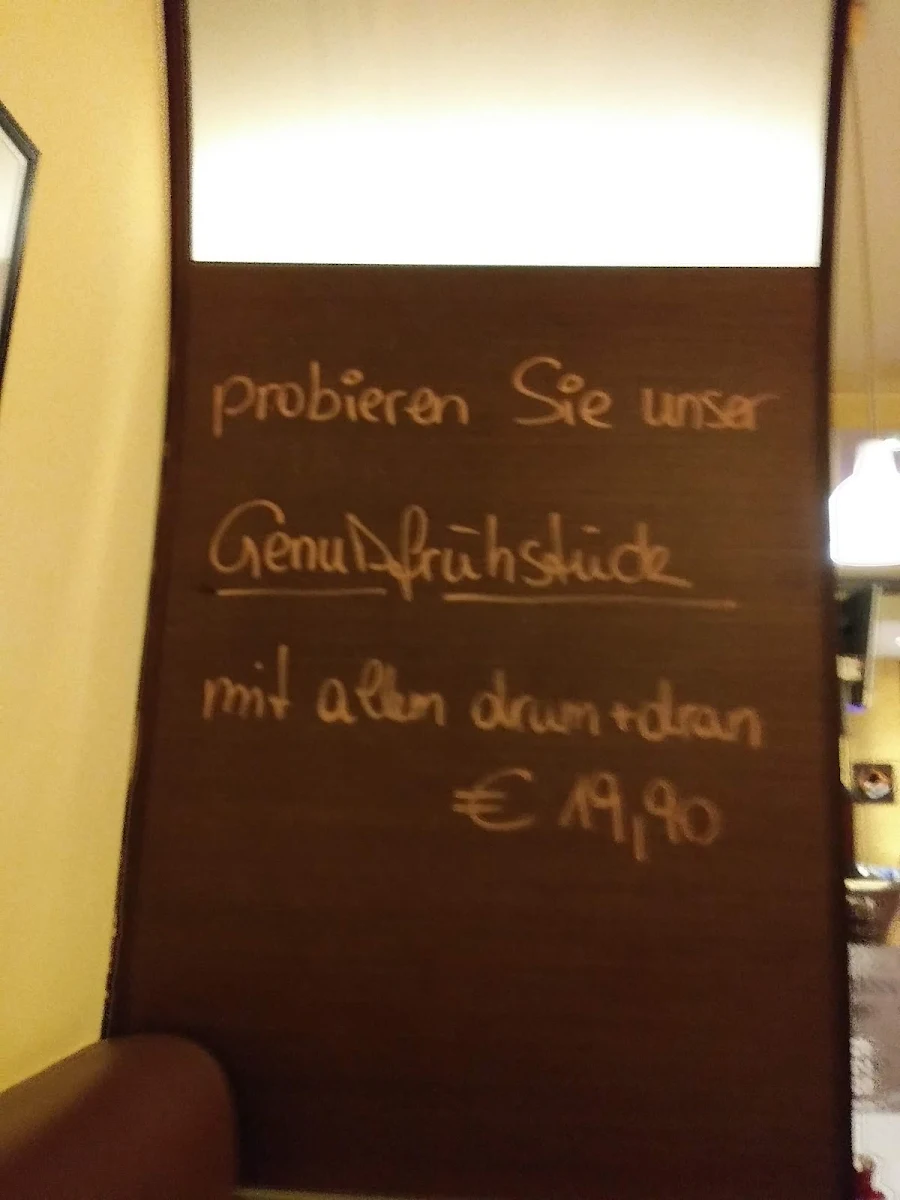 probieren Sie unser
Genußfrühstück
mit allem drum + dran
€ 19,90